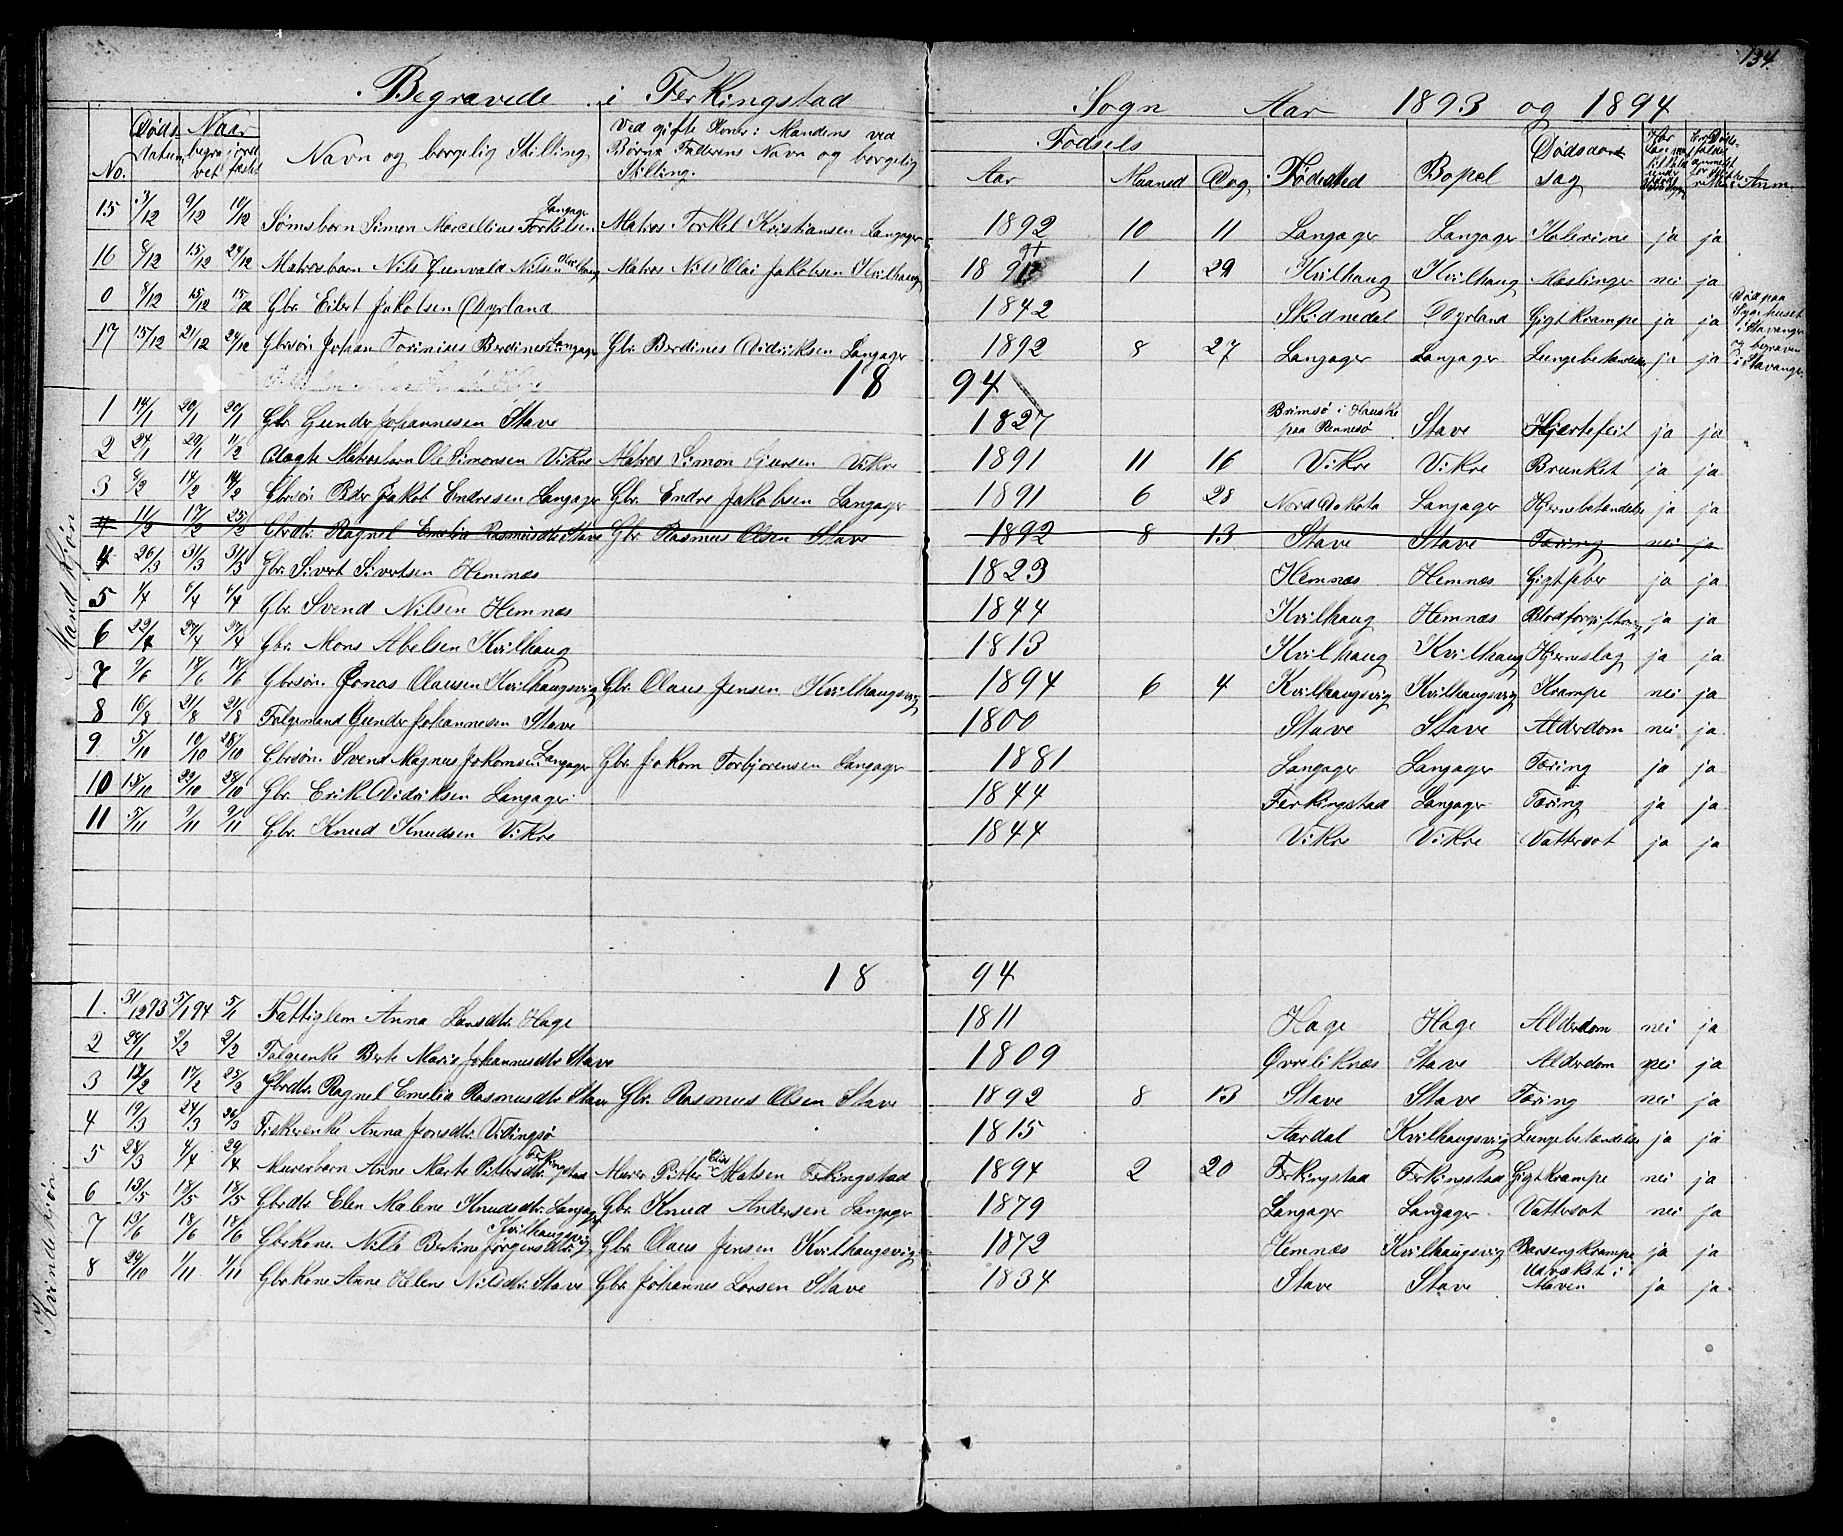 134.
Begravede i Ferkingstad Sogn Aar 1893 og 1894
No. Døds datum Naar begravet jordfæstet Navn og borgelig Stilling Ved gifte Koner: Mandens ved Børn: Faderens Navn og borgelig Stilling. Fødsels Aar Maaned Dag Fødested Bopel Dødsaarsag Anm.
Mandkjøn
15 3/12 9/12 10/12 Sømsbarn Simon Marcellius Torkelsen Langager Matros Torkel Kristiansen Langager 1892 10 11 Langager Langager Kolerine ja ja
16 8/12 15/12 24/12 Matrosbarn Nils Gunvald Nilsen Kvilhaug Matros Nils Olai Jakobsen Kvilhaug 18 91 1 29 Kvilhaug Kvilhaug Mæslinger nei ja
0 8/12 15/12 15/12 Gbr. Eilert Jakobsen Dyrland 1842 Skidnedal Dyrland Gigtkrampe ja ja Død paa Sygehuset i Stavanger og begraven i Stavanger.
17 15/12 21/12 24/12 Gbrsøn Johan Torinius Berdinesen Langager Gbr. Berdines Didriksen Langager 1892 8 27 Langager Langager Lungebetændelse ja ja
18 94
1 14/1 20/1 20/1 Gbr Gunder Johannesen Stave 1827 Brimsø i Hauske paa Rennesø Stave Hjertefeil ja ja
2 24/1 29/1 11/2 Uægte Matrosbarn Ole Simonsen Vikre Matros Simon Vikre 1891 11 16 Vikre Vikre Brunket ja ja
3 8/2 14/2 14/2 Gbrsøn Peder Jakob Endresen Langager Gbr. Endre Jakobsen Langager 1891 6 28 Nord Dakota Langager Hjernebetændelse ja ja
4 11/2 17/2 25/2 Gbrdtr. Ragnel Emelia Rasmusdtr. Stave Gbr. Rasmus Olsen Stave 1892 8 13 Stave Stave Tæring nei ja
4 26/3 31/3 31/3 Gbr. Sivert Sivertsen Hemnæs 1823 Hemnæs Hemnæs Gigtfeber ja ja
5 1/4 6/4 6/4 Gbr. Svend Nilsen Hemnæs 1844 Kvilhaug Hemnæs Blodforgiftning ja ja
6 22/4 27/4 27/4 Gbr. Mons Abelsen Kvilhaug 1813 Kvilhaug Kvilhaug Hjerneslag ja ja
7 9/6 18/6 18/6 Gbrsøn. Jonas Olausen Kvilhaugsvig Gbr. Olaus Jensen Kvilhaugsvig 1894 6 4 Kvilhaugsvig Kvilhaugsvig Krampe nei ja
8 16/8 21/8 21/8 Følgemand Gunder Johannesen Stave 1800 Stave Stave Alderdom nei ja
9 5/10 10/10 28/10 Gbrsøn. Svend Magnus Jokomsen Langager Gbr. Jokom Torbjørensen Langager 1881 Langager Langager Tæring ja ja
10 18/10 22/10 28/10 Gbr. Erik Didriksen Langager 1844 Ferkingstad Langager Tæring ja ja
11 5/11 9/11 9/11 Gbr. Knud Knudsen Vikre 1844 Vikre Vikre Vattersot ja ja
18 94
Kvindekjøn
1. 31/12 93 5/1 94 5/1 Fattiglem Anna Larsdtr. Hage 1811 Hage Hage Alderdom nei ja
2 28/1 2/2 2/2 Følgeenke Berte Marie Johannesdtr. Stave 1809 Øvreliknæs Stave Alderdom nei ja
3 12/2 17/2 25/2 Gbrdtr. Ragnel Emelia Rasmusdtr. Stave Gbr. Rasmus Olsen Stave 1892 8 13 Stave Stave Tæring nei ja
4 19/3 24/3 26/3 Fiskerenke Anna Jonsdtr. Vidingsø 1815 Aardal Kvilhaugsvig Lungebetændelse ja ja
5 28/3 4/4 29/4 Murerbarn Anne Marte Pittersdtr. Ferkingstad Murer Pitter Elias Matsen Ferkingstad 1894 2 20 Ferkingstad Ferkingstad Gigtkrampe nei ja
6 13/5 18/5 18/5 Gbrdtr. Elen Malene Knudsdtr. Langager Gbr. Knud Andersen Langager 1879 Langager Langager. Vattersot nei ja
7 13/6 18/6 18/6 Gbrkone. Nille Bertine Jørgensdtr. Kvilhaugsvig Gbr. Olaus Jensen Kvilhaugsvig 1872 Hemnæs Kvilhaugsvig Barsengkrampe ja ja
8 24/10 1/11 1/11 Gbrkone Anne Helene Nilsdtr. Stave Gbr. Johannes Larsen Stave 1834 Stave Stave Udvæket i Maven ja ja.